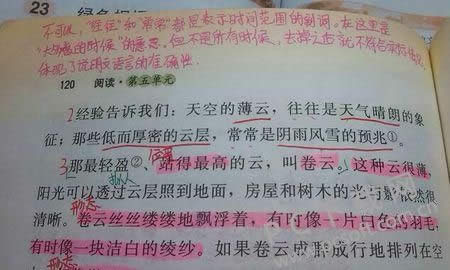 23
不可以，“往往”和“常常”都是表示时间范围的副词，在这里是
“大多数的时候”的意思。但不是所有时候，去掉之后就不符合实际情况
体现了说明文语言的准确性
120 阅读·第五单元
2经验告诉我们：天空的薄云，往往是天气晴朗的象
征；那些低而厚密的云层，常常是阴雨风雪的预兆①。
3那最轻盈②、站得最高的云，叫卷云。这种云很薄，
拟人
阳光可以透过云层照到地面，房屋和树木的光与影依然很
清晰。卷云丝丝缕缕地飘浮着，有时像一片白色的羽毛，
有时像一块洁白的绫纱。如果卷云成群成行地排列在空